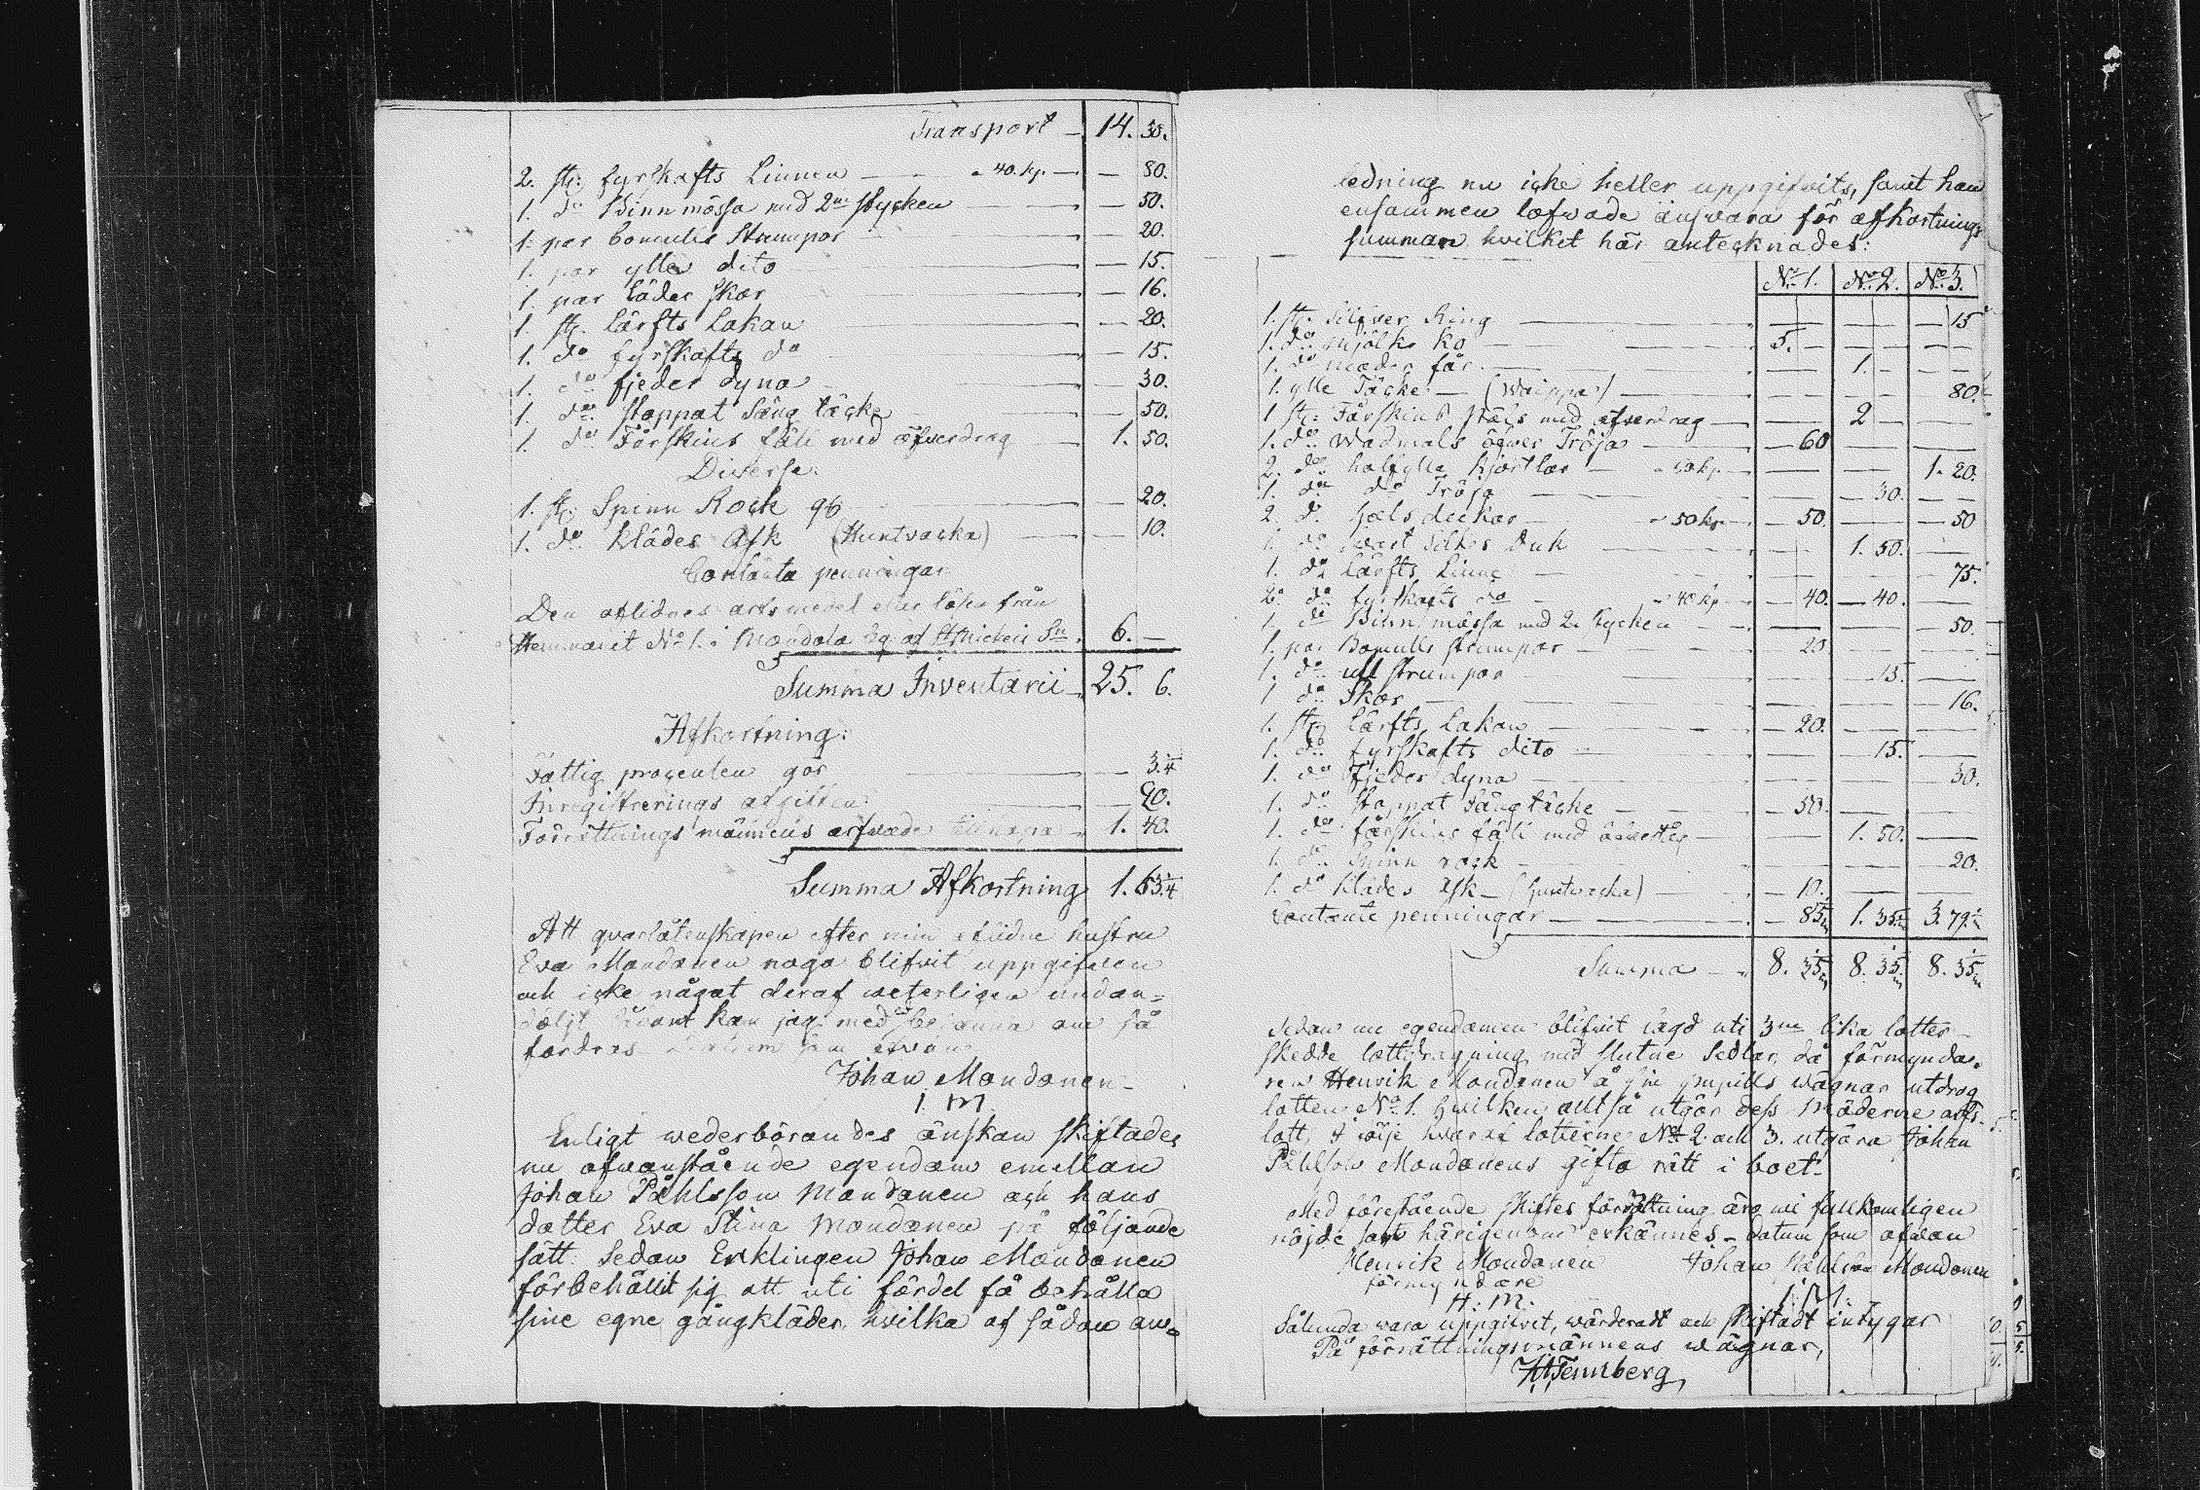 Transport — 14. 30.
2. st: fyrskafts Linnen — 40. kp. — — 80.
1. do Binnmössa med 2ne stycken — — 50.
1. par bomulls Strumpor — 20.
1. par ylle dito — — 15.
1. par läder skor — 16.
1. st. lärfts Lakan — 20.
1. do fyrskafts do — 15.
1. do fjeder dyna — 30.
1. do stoppat Säng täcke — 50.
1. do Fårskins fäll med öfverdrag — 1. 50.
Diverse.
1. st. Spinn Rock — 20.
1. do klädes Ask (Huntvacka) — — 10.
Contanta penningar
Den aflidnes arfsmedel eller lösen från
Hemmanet No 1. i Mondola by af St Michels Sn. 6. —
Summa Inventarii 25. 6.
Afkortning:
Fattig procenten gör — — 3.1/4
Inregistrerings afgiften — 20.
Förrättnings männens arfvode tillhopa 1. 40.
Summa Afkortning 1. 63.1/4
Att qvarlåtenskapen efter min aflidne hustru
Eva Mondonen noga blifvit uppgifven
och icke något deraf veterligen undan=
döljt, kan jag med besanna om så
fordras som ofvan
Johan Mondonen
I M
Enligt wederbörandes önskan skiftades
nu ofvanstående egendom emellan
Johan Påhlsson Mondonen och hans
dotter Eva Stina Mondonen på följande
sätt. Sedan Enklingen Johan Mondonen
förbehållit sig att uti fördel få behålla
sine egne gångkläder, hvilka af sådan an=
ledning nu icke heller uppgifvits, samt han
ensammen lofvade ansvara för afkortnings
summan hvilket här antecknades:
No 1. No 2. No 3.
1. st. Silfver Ring — — — 15
1. do Mjölk ko — 5. — —
1. do Moder får — — 1. — —
1. ylle Täcke — (Waippa) — — 80.
1 st: Fårskins päls med öfverdrag — 2 —
1. do Wadmals öfver Tröja — 60
2. do halfylle kjortlar — 60 kp. — 1. 20.
1. do do Tröja — — 30. —
2. do hals dukar — 50 kp. — 50. — 50
1. do swart Silkes Duk — 1. 50. —
1. do lärfts Linne — — 75.
2. do fyrskafts do — 40 kp. — 40. — 40. —
1. do Binnmössa med 2. stycken — — 50.
1. par Bomulls strumpor — 20 —
1. do ull strumpor — 15. —
1 do Skor — — 16.
1. st. lärfts Lakan — 20. —
1. do fyrskafts dito — — 15. —
1. do Fjeder dyna — — 30.
1. do Stoppat Sängtäcke — 50. —
1. do fårskins fäll med — 1. 50. —
1. do Spinn rock — — 20.
1. do klädes Ask — (huntvacka) — 10. —
Contante penningar — — 85 1. 35 3. 79
Summa — 8. 35 8. 35 8. 35
Sedan nu egendomen blifvit lagd uti 3ne lika lotter
skedde lottdragning med slutne Sedlar, då förmynda=
ren Henrik Mondonen å sin pupills wägnar utdrog
lotten No 1. hvilken altså utgör dess Möderne arfs-
lott, i följe hvaraf lotterne No 2. och 3. utgöra Johan
Påhlsson Mondonens gifto rätt i boet.
Med förestående skiftes förrättning äro wi fullkomligen
nöjde som härigenom erkännes — datum som ofvan
Henrik Mondonen Johan Påhlsson Mondonen
förmyndare
H: M. I M.
Sålunda vara uppgifvit, wärderadt och skiftadt intygar
På förrättningsmännens wägnar,
Tennberg